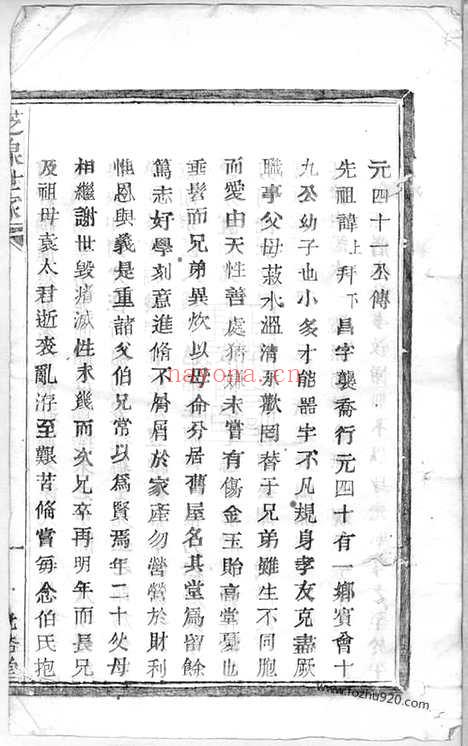 元四十一公傳
先祖諱上拜下昌字襲喬行元四十有一鄉賓曾十
九公幼子也小多才能器宇不凡規身孝友克盡厥
職事父母菽水溫清承歡罔替于兄弟雖生不同胞
而愛由天性善處猜嫌未嘗有傷金玉貽高堂憂也
垂髫而兄弟異炊以母命分居舊屋名其堂為留餘
篤志好學刻意進脩不屑屑於家產勿營營於財利
惟恩與義是重諸父伯兄常以為賢焉年二十父母
相繼謝世毀瘠滅性未幾而次兄卒再明年而長兄
及祖母袁太君逝喪亂洊至艱苦備嘗每念伯氏抱
芝泉世家
一
nayona.cn
www.fozhu920.com